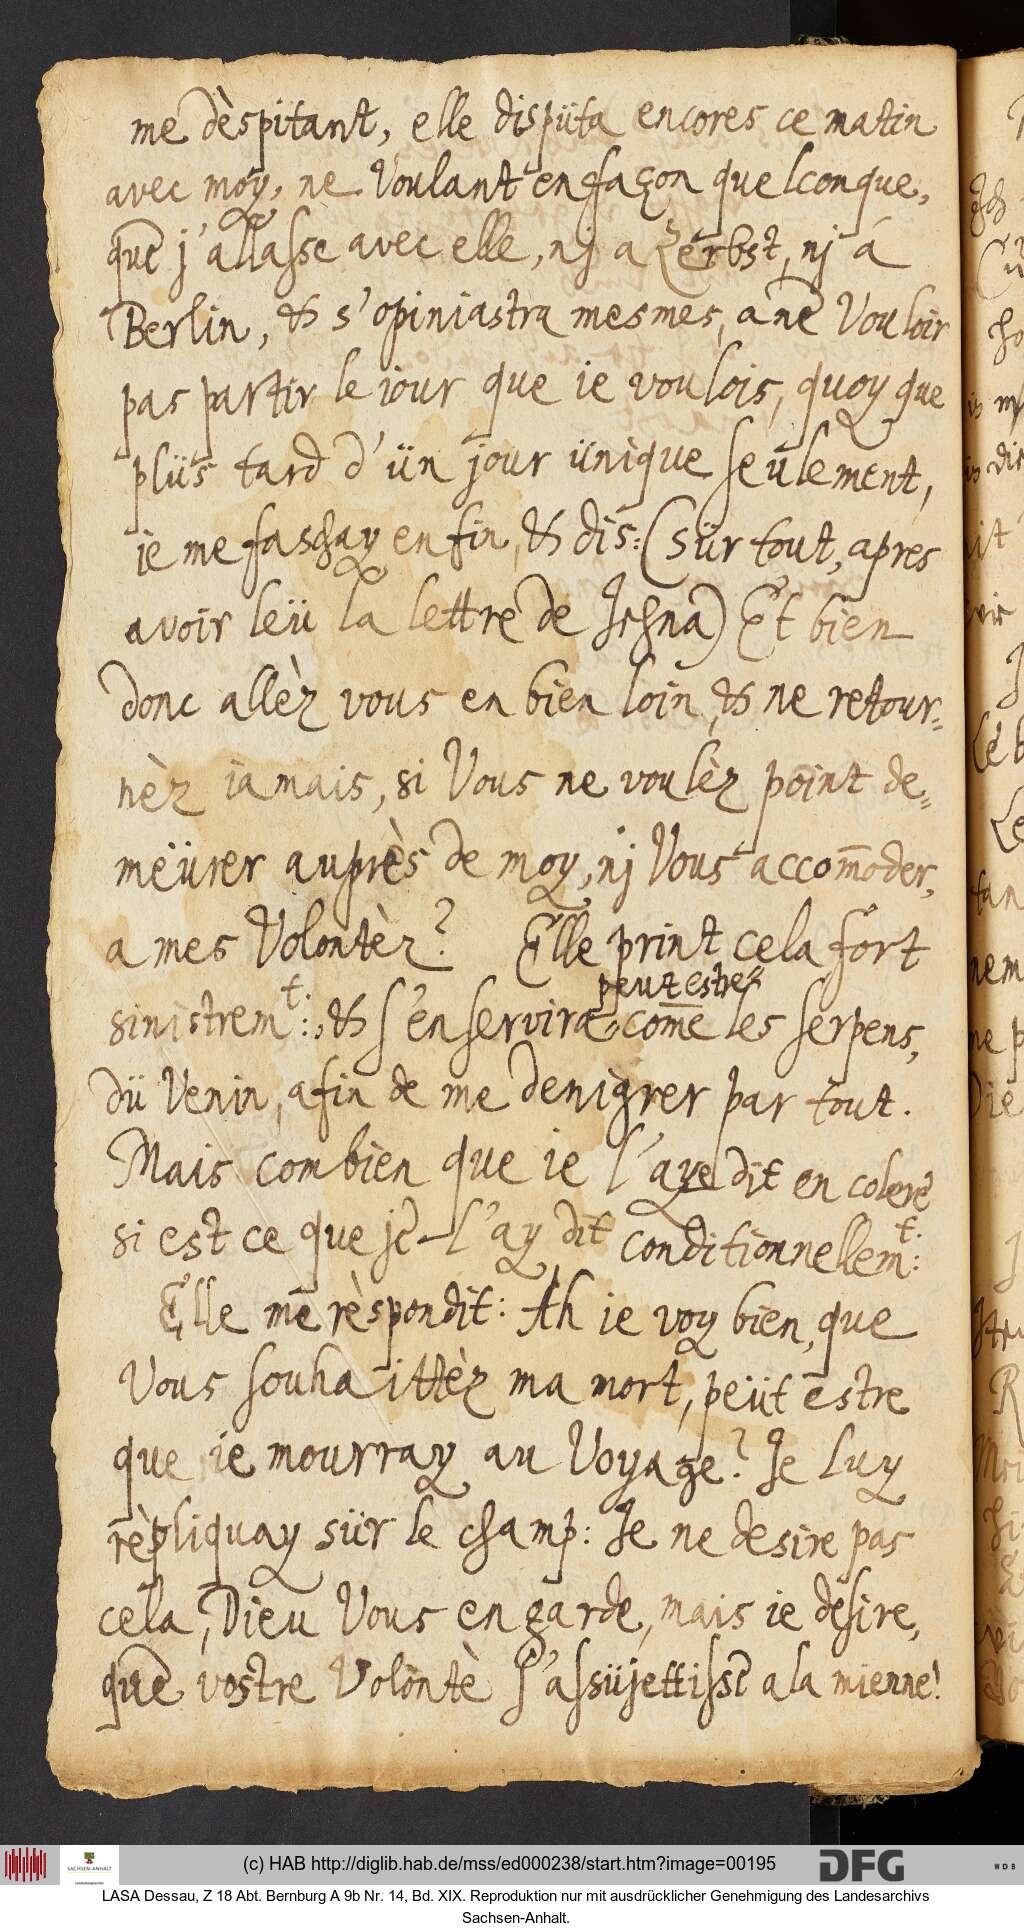 me dèspitant, elle dispüta encores ce matin
avec moy, ne Voulant en façon quelconque,
que j'allasse avec elle, nj a Zerbst, nj á
Berlin, & s'opiniastra mesmes, a ne Vouloir
pas partir le jour que ie voulois, quoy que
plüs tard d'ün jour ünique seülement,
ie me faschay enfin, & dis: (sür tout, apres
avoir leü la lettre de Jehna) Et bien
donc allèz vous en bien loin, & ne retour=
nèz iamais, si Vous ne voulèz point de=
meürer auprès de moy, nj Vous accom̄oder,
a mes Volontèz? Elle print cela fort
peut estre,
sinistrem^t:, & s'en servira, com̄e les serpens,
dü Venin, afin de me denigrer par tout.
Mais combien que ie l'aye dit en colere
si est ce que je l'ay dit conditionnellem^t:
Elle me rèspondit: Ah ie voy bien, que
Vous souhaittèz ma mort, peüt estre
que ie mourray au Voyage? Je luy
rèpliquay sür le champ: Je ne desire pas
cela, Dieu Vous en garde, mais ie desire,
que vostre Volontè s'assüjettisse a la mienne!
Ich
(c) HAB http://diglib.hab.de/mss/ed000238/start.htm?image=00195
SACHSEN-ANHALT
DFG
WDB
LASA Dessau, Z 18 Abt. Bernburg A 9b Nr. 14, Bd. XIX. Reproduktion nur mit ausdrücklicher Genehmigung des Landesarchivs
Sachsen-Anhalt.